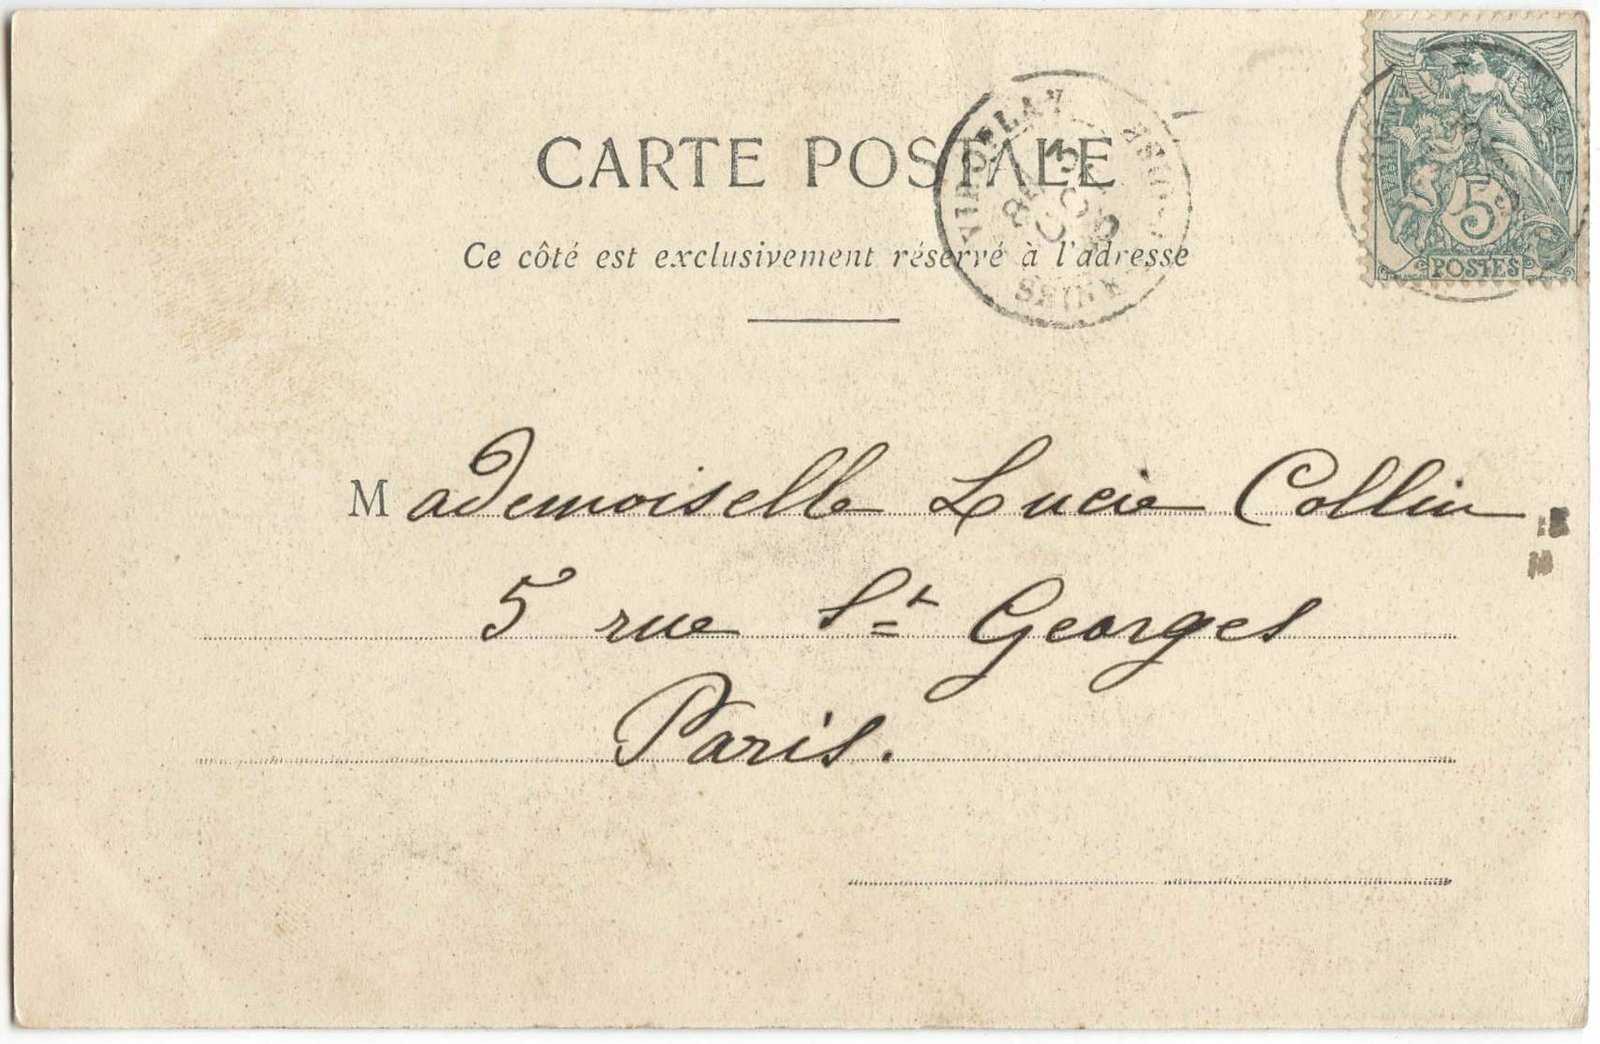 CARTE POSTALE
Ce côté est exclusivement réservé à l'adresse
VIROFLAY
5
POSTES
Mademoiselle Lucie Collin
5 rue St Georges
Paris.